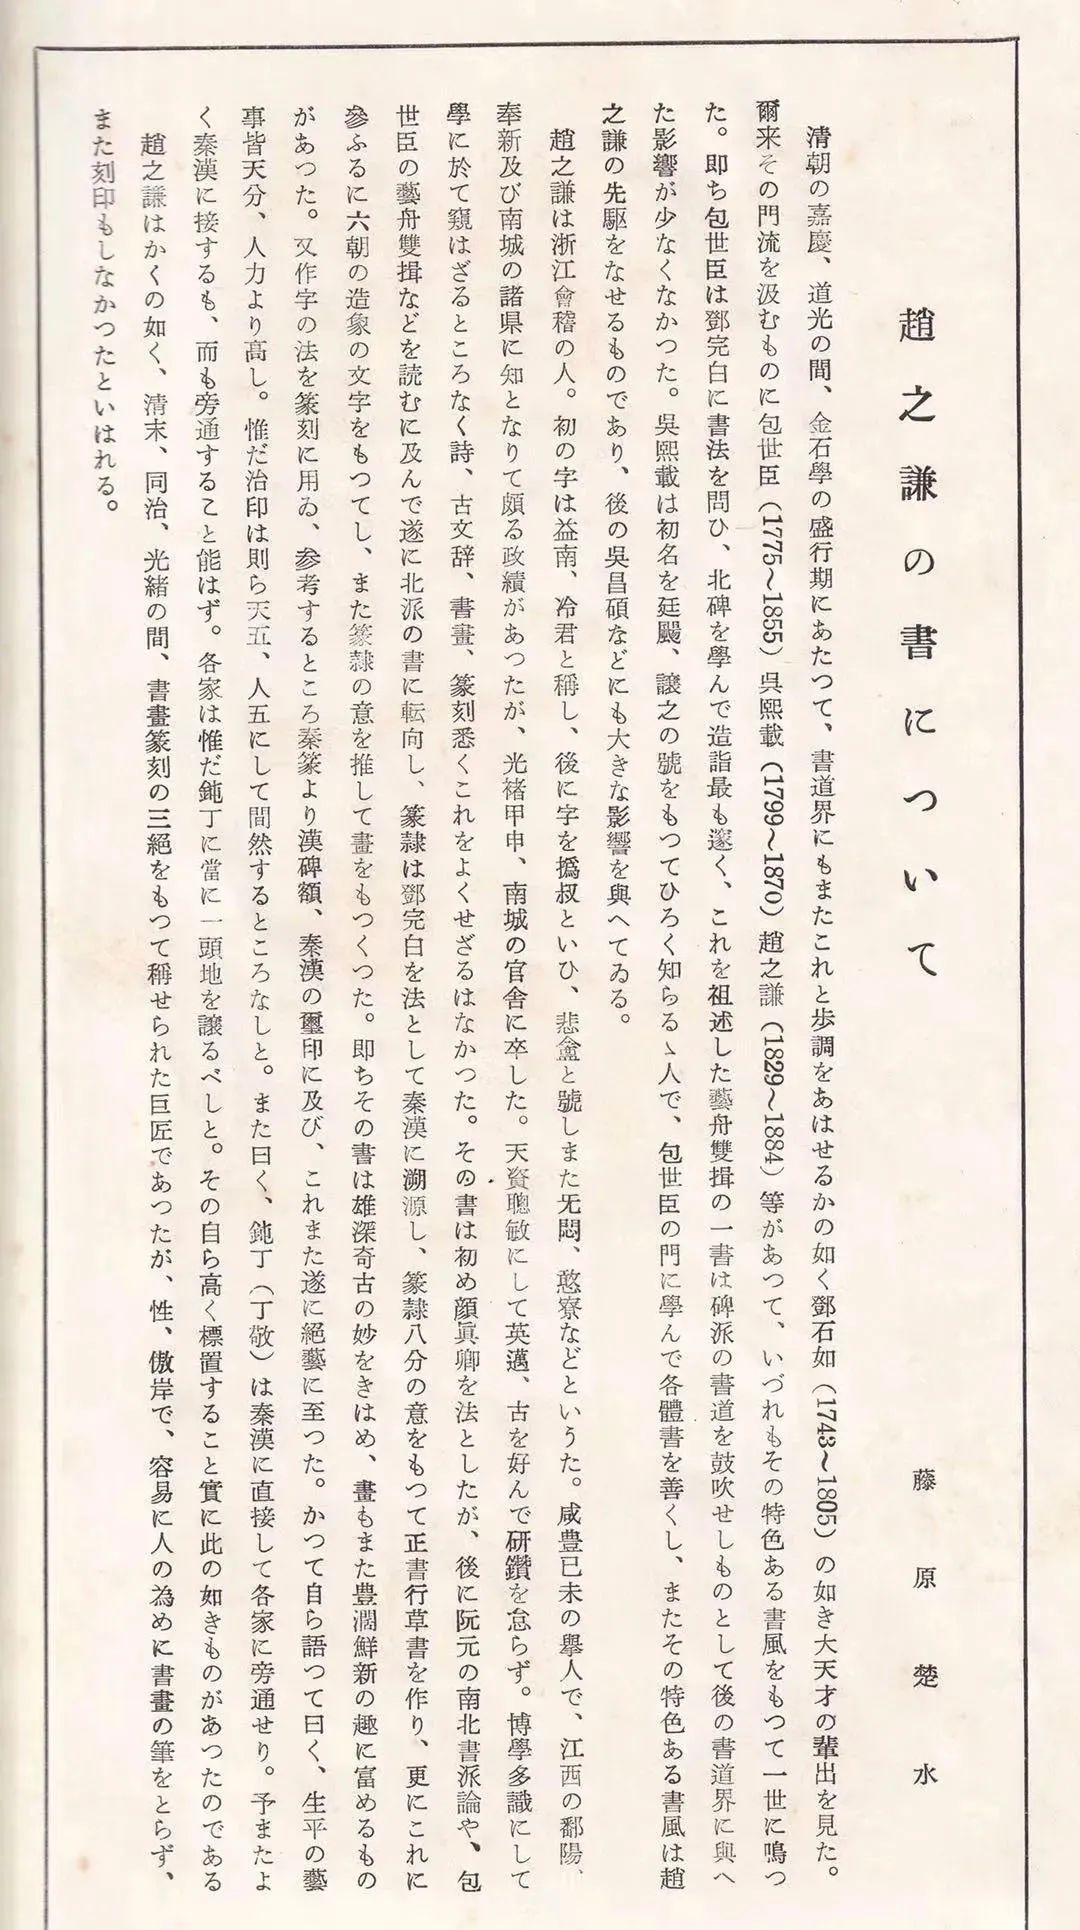 趙之謙の書について
藤原楚水
清朝の嘉慶、道光の間、金石學の盛行期にあたつて、書道界にもまたこれと歩調をあはせるかの如く鄧石如（1743〜1805）の如き大天才の輩出を見た。
爾来その門流を汲むものに包世臣（1775〜1855）呉熙載（1799〜1870）趙之謙（1829〜1884）等があつて、いづれもその特色ある書風をもつて一世に鳴つ
た。即ち包世臣は鄧完白に書法を問ひ、北碑を學んで造詣最も邃く、これを祖述した藝舟雙揖の一書は碑派の書道を鼓吹せしものとして後の書道界に與へ
た影響が少なくなかつた。呉熙載は初名を廷颺、譲之の號をもつてひろく知らるゝ人で、包世臣の門に學んで各體書を善くし、またその特色ある書風は趙
之謙の先駆をなせるものであり、後の呉昌碩などにも大きな影響を與へてゐる。
趙之謙は浙江會稽の人。初の字は益南、冷君と稱し、後に字を撝叔といひ、悲盦と號しまた无悶、憨寮などというた。咸豊已未の擧人で、江西の鄱陽、
奉新及び南城の諸県に知となりて頗る政績があつたが、光褚甲申、南城の官舎に卒した。天資聰敏にして英邁、古を好んで研鑽を怠らず。博學多識にして
學に於て窺はざるところなく詩、古文辞、書畫、篆刻悉くこれをよくせざるはなかつた。その書は初め顔眞卿を法としたが、後に阮元の南北書派論や、包
世臣の藝舟雙揖などを読むに及んで遂に北派の書に転向し、篆隷は鄧完白を法として秦漢に溯源し、篆隷八分の意をもつて正書行草書を作り、更にこれに
參ふるに六朝の造象の文字をもつてし、また篆隷の意を推して畫をもつくつた。即ちその書は雄深奇古の妙をきはめ、畫もまた豊濶鮮新の趣に富めるもの
があつた。又作字の法を篆刻に用ゐ、参考するところ秦篆より漢碑額、秦漢の璽印に及び、これまた遂に絕藝に至つた。かつて自ら語つて曰く、生平の藝
事皆天分、人力より高し。惟だ治印は則ら天五、人五にして間然するところなしと。また曰く、鈍丁（丁敬）は秦漢に直接して各家に旁通せり。予またよ
く秦漢に接するも、而も旁通すること能はず。各家は惟だ鈍丁に當に一頭地を譲るべしと。その自ら高く標置すること實に此の如きものがあつたのである
趙之謙はかくの如く、清末、同治、光緒の間、書畫篆刻の三絕をもつて稱せられた巨匠であつたが、性、傲岸で、容易に人の為めに書畫の筆をとらず、
また刻印もしなかつたといはれる。